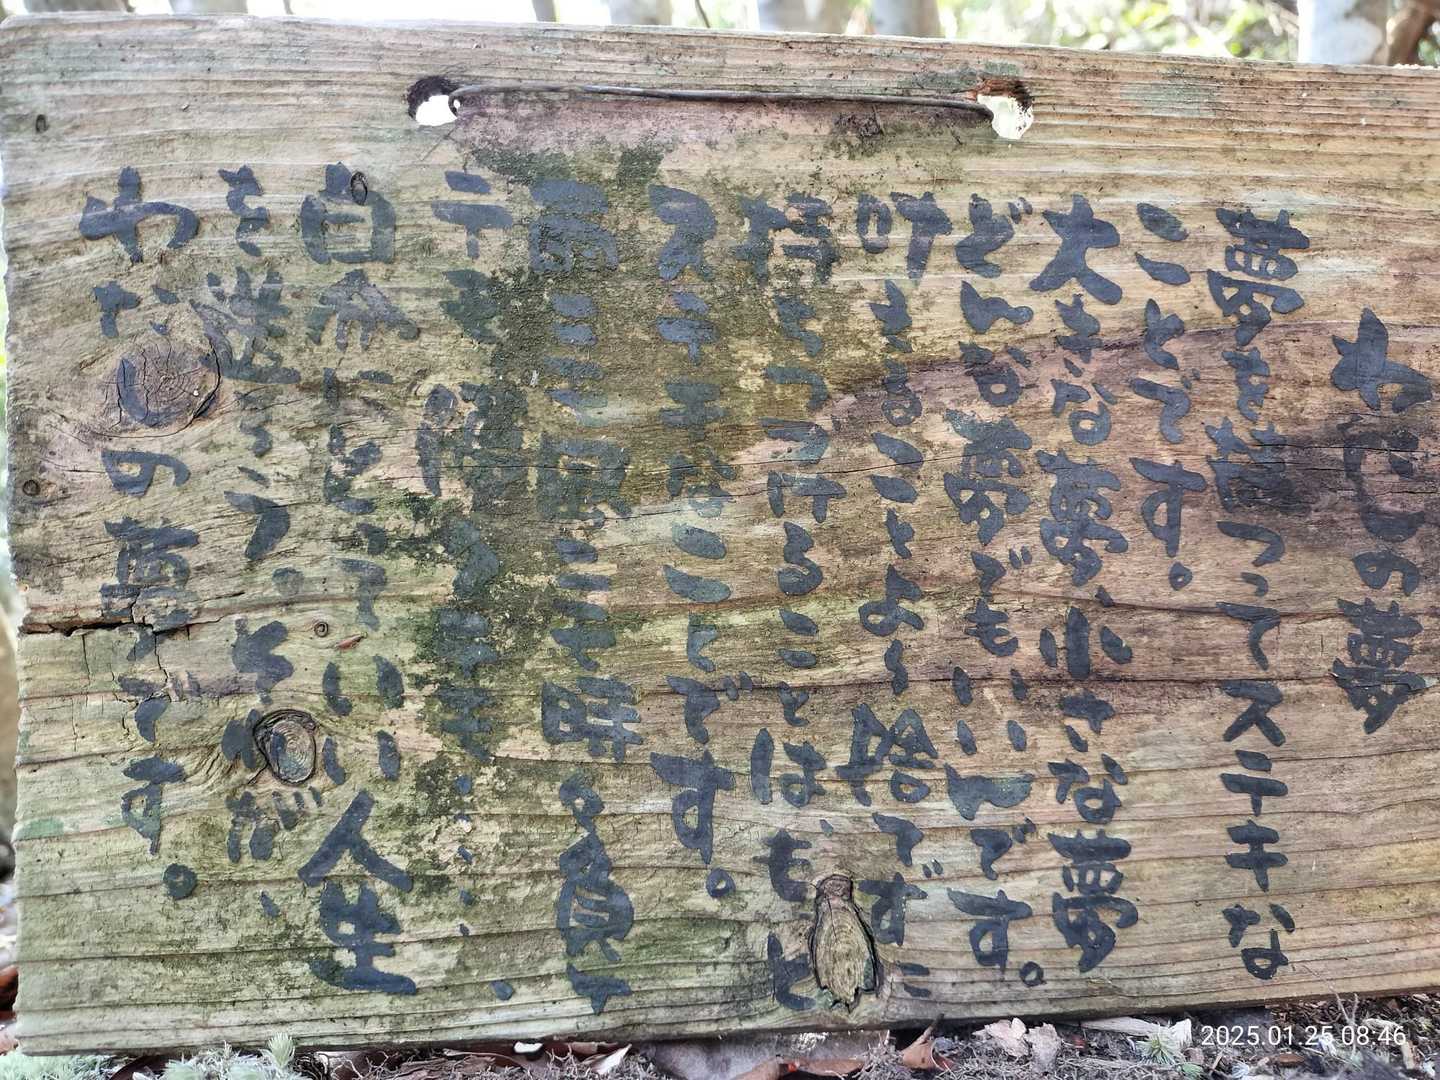 わたしの夢
夢を ってステキな
ことです。
大きな夢、小さな夢
どんな夢でもいいんです。
叶えることより捨てずに
持ちつづけることは、もっと
ステキなことです。
雨ニモ風ニモ時 負
テモ
自分にとっていい人生
を送ろう。それが、
わたしの夢です。
2025.01.25 08:46